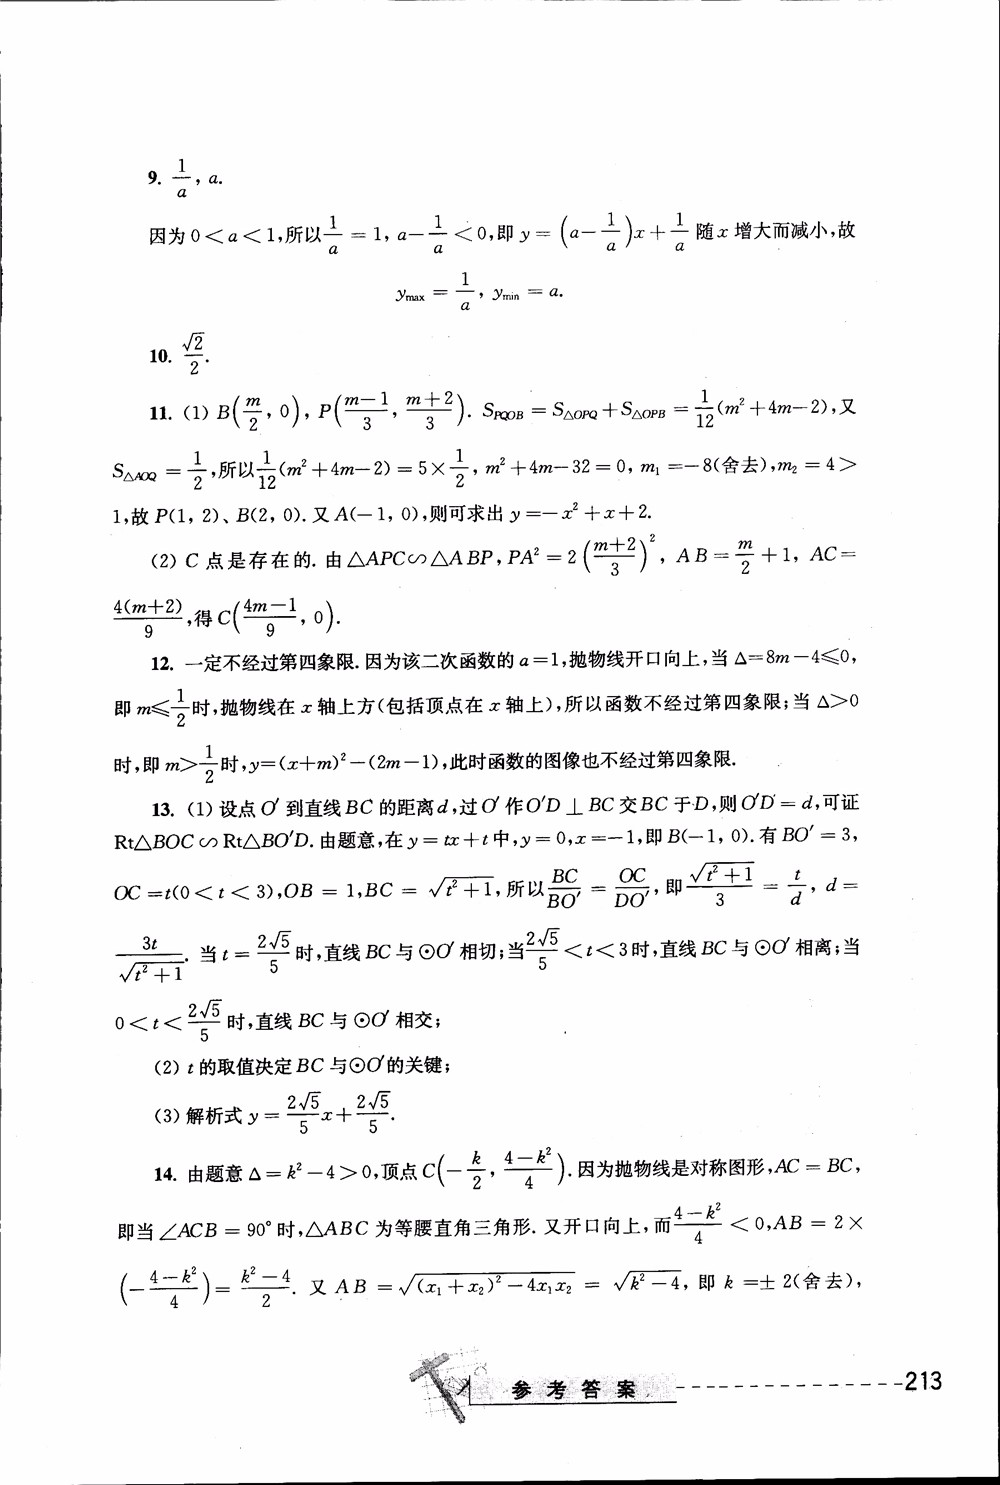 9. 1/a, a.
因为 0<a<1,所以 1/a = 1, a-1/a<0,即 y = (a-1/a)x+1/a 随 x 增大而减小,故
y_max = 1/a, y_min = a.
10. √2/2.
11. (1) B(m/2, 0), P((m-1)/3, (m+2)/3). S_PQOB = S_△OPQ + S_△OPB = 1/12(m²+4m-2),又
S_△AOQ = 1/2,所以 1/12(m²+4m-2) = 5×1/2, m²+4m-32 = 0, m₁ =-8(舍去),m₂ = 4>
1,故 P(1, 2)、B(2, 0). 又 A(-1, 0),则可求出 y =-x²+x+2.
(2) C 点是存在的. 由△APC∽△ABP, PA² = 2((m+2)/3)², AB = m/2+1, AC=
4(m+2)/9,得 C((4m-1)/9, 0).
12. 一定不经过第四象限. 因为该二次函数的 a=1,抛物线开口向上,当 Δ=8m-4≤0,
即 m≤1/2时,抛物线在 x 轴上方(包括顶点在 x 轴上),所以函数不经过第四象限;当 Δ>0
时,即 m>1/2时,y=(x+m)²-(2m-1),此时函数的图像也不经过第四象限.
13. (1) 设点 O′ 到直线 BC 的距离 d,过 O′ 作 O′D⊥BC 交 BC 于 D,则 O′D = d,可证
Rt△BOC∽Rt△BO′D. 由题意,在 y = tx+t 中,y = 0,x =-1,即 B(-1, 0). 有 BO′ = 3,
OC =t(0<t<3),OB = 1,BC = √(t²+1),所以 BC/BO′ = OC/DO′,即 √(t²+1)/3 = t/d, d =
3t/√(t²+1). 当 t = 2√5/5 时,直线 BC 与⊙O′ 相切;当 2√5/5<t<3 时,直线 BC 与⊙O′ 相离;当
0<t<2√5/5 时,直线 BC 与⊙O′ 相交;
(2) t 的取值决定 BC 与⊙O′的关键;
(3) 解析式 y = 2√5/5 x + 2√5/5.
14. 由题意 Δ = k²-4>0,顶点 C(-k/2, (4-k²)/4). 因为抛物线是对称图形,AC = BC,
即当∠ACB = 90°时,△ABC 为等腰直角三角形. 又开口向上,而 (4-k²)/4<0,AB = 2×
(-(4-k²)/4) = (k²-4)/2. 又 AB = √((x₁+x₂)²-4x₁x₂) = √(k²-4), 即 k =±2(舍去),
参考答案
213